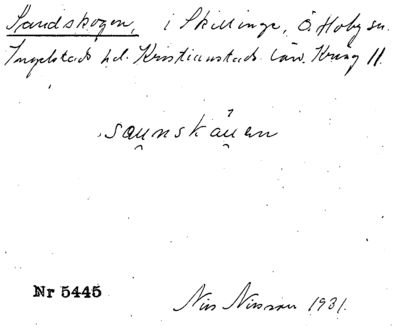 Sandskogen, i Skillinge, Ö. Hoby sn.
Ingelstads hd. Kristianstads län. Kring 11.
saunskåuen
Nr 5445 Nils Nilsson 1931.